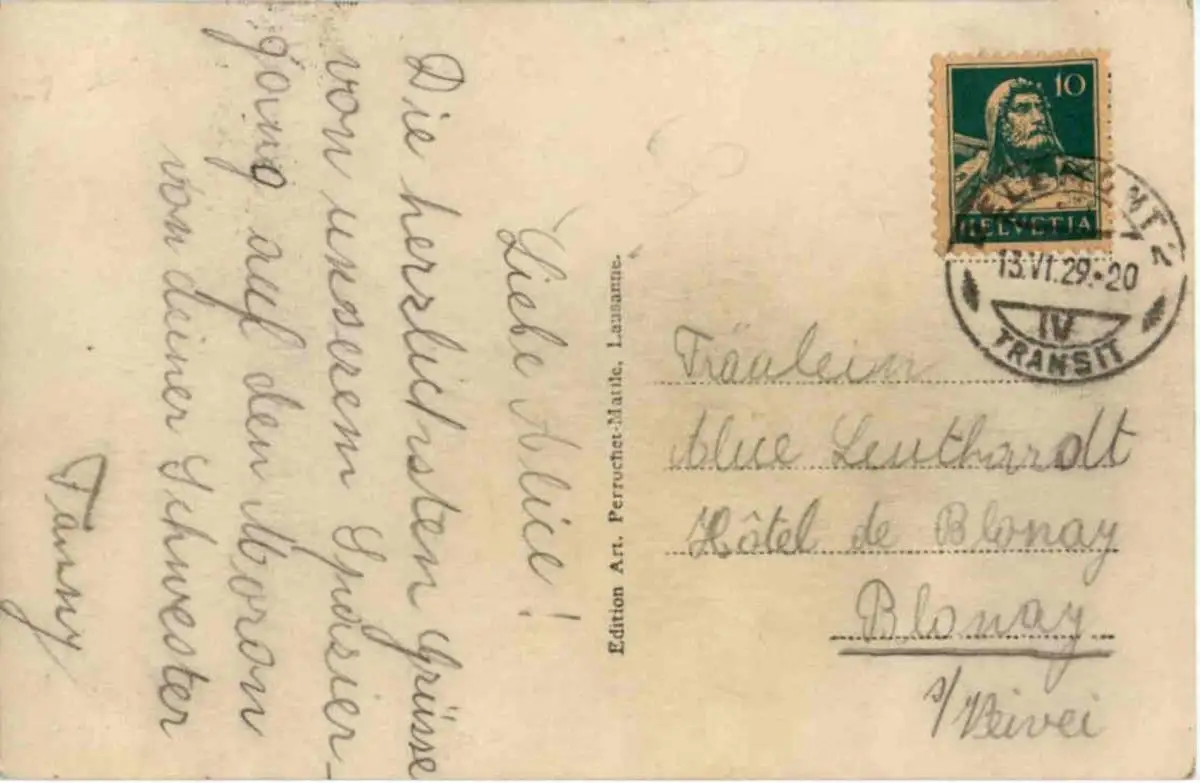 Liebe Alice!
Die herzlichsten Grüsse
von unserem Spazier-
gang auf den Moron
von deiner Schwester
Fanny
Edition Art. Perrochet-Matile, Lausanne.
10
HELVETIA
13.VI.29.-20
IV
TRANSIT
Fräulein
Alice Leuthardt
Hôtel de Blonay
Blonay
s/Veivei